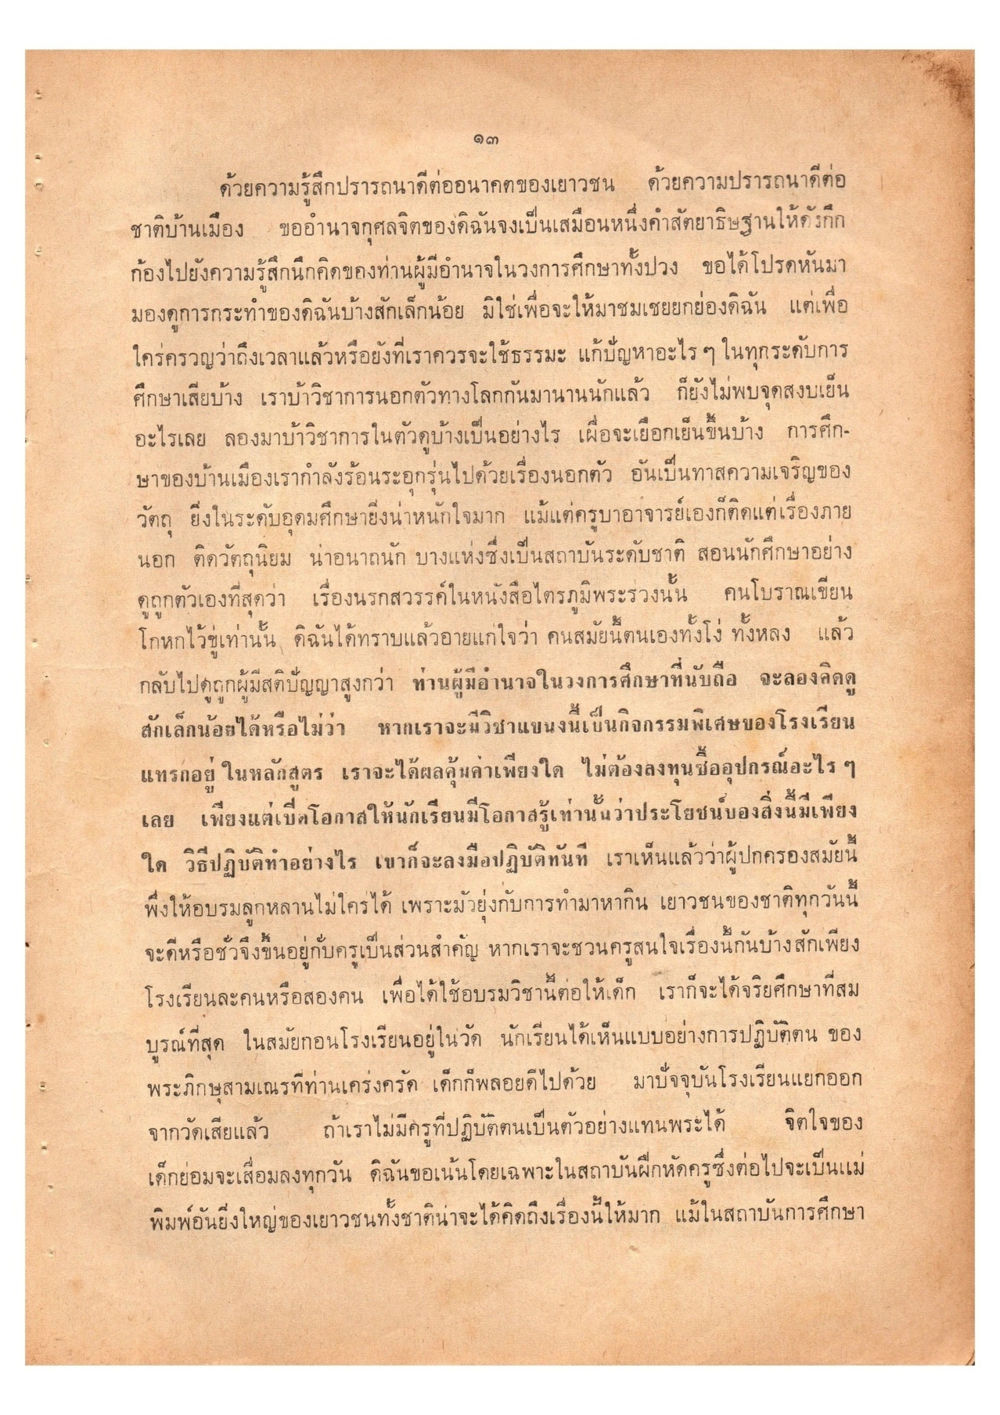 ๑๓
ด้วยความรู้สึกปรารถนาดีต่ออนาคตของเยาวชน ด้วยความปรารถนาดีต่อ
ชาติบ้านเมือง ขออำนาจกุศลจิตของดิฉันจงเป็นเสมือนหนึ่งคำสัตยาธิษฐานให้ดังกึก
ก้องไปยังความรู้สึกนึกคิดของท่านผู้มีอำนาจในวงการศึกษาทั้งปวง ขอได้โปรดหันมา
มองดูการกระทำของดิฉันบ้างสักเล็กน้อย มิใช่เพื่อจะให้มาชมเชยยกย่องดิฉัน แต่เพื่อ
ใคร่ครวญว่าถึงเวลาแล้วหรือยังที่เราควรจะใช้ธรรมะ แก้ปัญหาอะไร ๆ ในทุกระดับการ
ศึกษาเสียบ้าง เราบ้าวิชาการนอกตัวทางโลกกันมานานนักแล้ว ก็ยังไม่พบจุดสงบเย็น
อะไรเลย ลองมาบ้าวิชาการในตัวดูบ้างเป็นอย่างไร เผื่อจะเยือกเย็นขึ้นบ้าง การศึก-
ษาของบ้านเมืองเรากำลังร้อนระอุกรุ่นไปด้วยเรื่องนอกตัว อันเป็นทาสความเจริญของ
วัตถุ ยิ่งในระดับอุดมศึกษายิ่งน่าหนักใจมาก แม้แต่ครูบาอาจารย์เองก็คิดแต่เรื่องภาย
นอก ติดวัตถุนิยม น่าอนาถนัก บางแห่งซึ่งเป็นสถาบันระดับชาติ สอนนักศึกษาอย่าง
ดูถูกตัวเองที่สุดว่า เรื่องนรกสวรรค์ในหนังสือไตรภูมิพระร่วงนั้น คนโบราณเขียน
โกหกไว้ขู่เท่านั้น ดิฉันได้ทราบแล้วอายแก่ใจว่า คนสมัยนี้ตนเองทั้งโง่ ทั้งหลง แล้ว
กลับไปดูถูกผู้มีสติปัญญาสูงกว่า ท่านผู้มีอำนาจในวงการศึกษาที่นับถือ จะลองคิดดู
สักเล็กน้อยได้หรือไม่ว่า หากเราจะมีวิชาแขนงนี้เป็นกิจกรรมพิเศษของโรงเรียน
แทรกอยู่ ในหลักสูตร เราจะได้ผลคุ้มค่าเพียงใด ไม่ต้องลงทุนซื้ออุปกรณ์อะไร ๆ
เลย เพียงแต่เปิดโอกาสให้นักเรียนมีโอกาสรู้เท่านั้นว่าประโยชน์ของสิ่งนี้มีเพียง
ใด วิธีปฏิบัติทำอย่างไร เขาก็จะลงมือปฏิบัติทันที เราเห็นแล้วว่าผู้ปกครองสมัยนี้
พึ่งให้อบรมลูกหลานไม่ใคร่ได้ เพราะมัวยุ่งกับการทำมาหากิน เยาวชนของชาติทุกวันนี้
จะดีหรือชั่วจึงขึ้นอยู่กับครูเป็นส่วนสำคัญ หากเราจะชวนครูสนใจเรื่องนี้กันบ้างสักเพียง
โรงเรียนละคนหรือสองคน เพื่อได้ใช้อบรมวิชานี้ต่อให้เด็ก เราก็จะได้จริยศึกษาที่สม
บูรณ์ที่สุด ในสมัยก่อนโรงเรียนอยู่ในวัด นักเรียนได้เห็นแบบอย่างการปฏิบัติตน ของ
พระภิกษุสามเณรที่ท่านเคร่งครัด เด็กก็พลอยดีไปด้วย มาปัจจุบันโรงเรียนแยกออก
จากวัดเสียแล้ว ถ้าเราไม่มีครูที่ปฏิบัติตนเป็นตัวอย่างแทนพระได้ จิตใจของ
เด็กย่อมจะเสื่อมลงทุกวัน ดิฉันขอเน้นโดยเฉพาะในสถาบันฝึกหัดครูซึ่งต่อไปจะเป็นแม่
พิมพ์อันยิ่งใหญ่ของเยาวชนทั้งชาติน่าจะได้คิดถึงเรื่องนี้ให้มาก แม้ในสถาบันการศึกษา